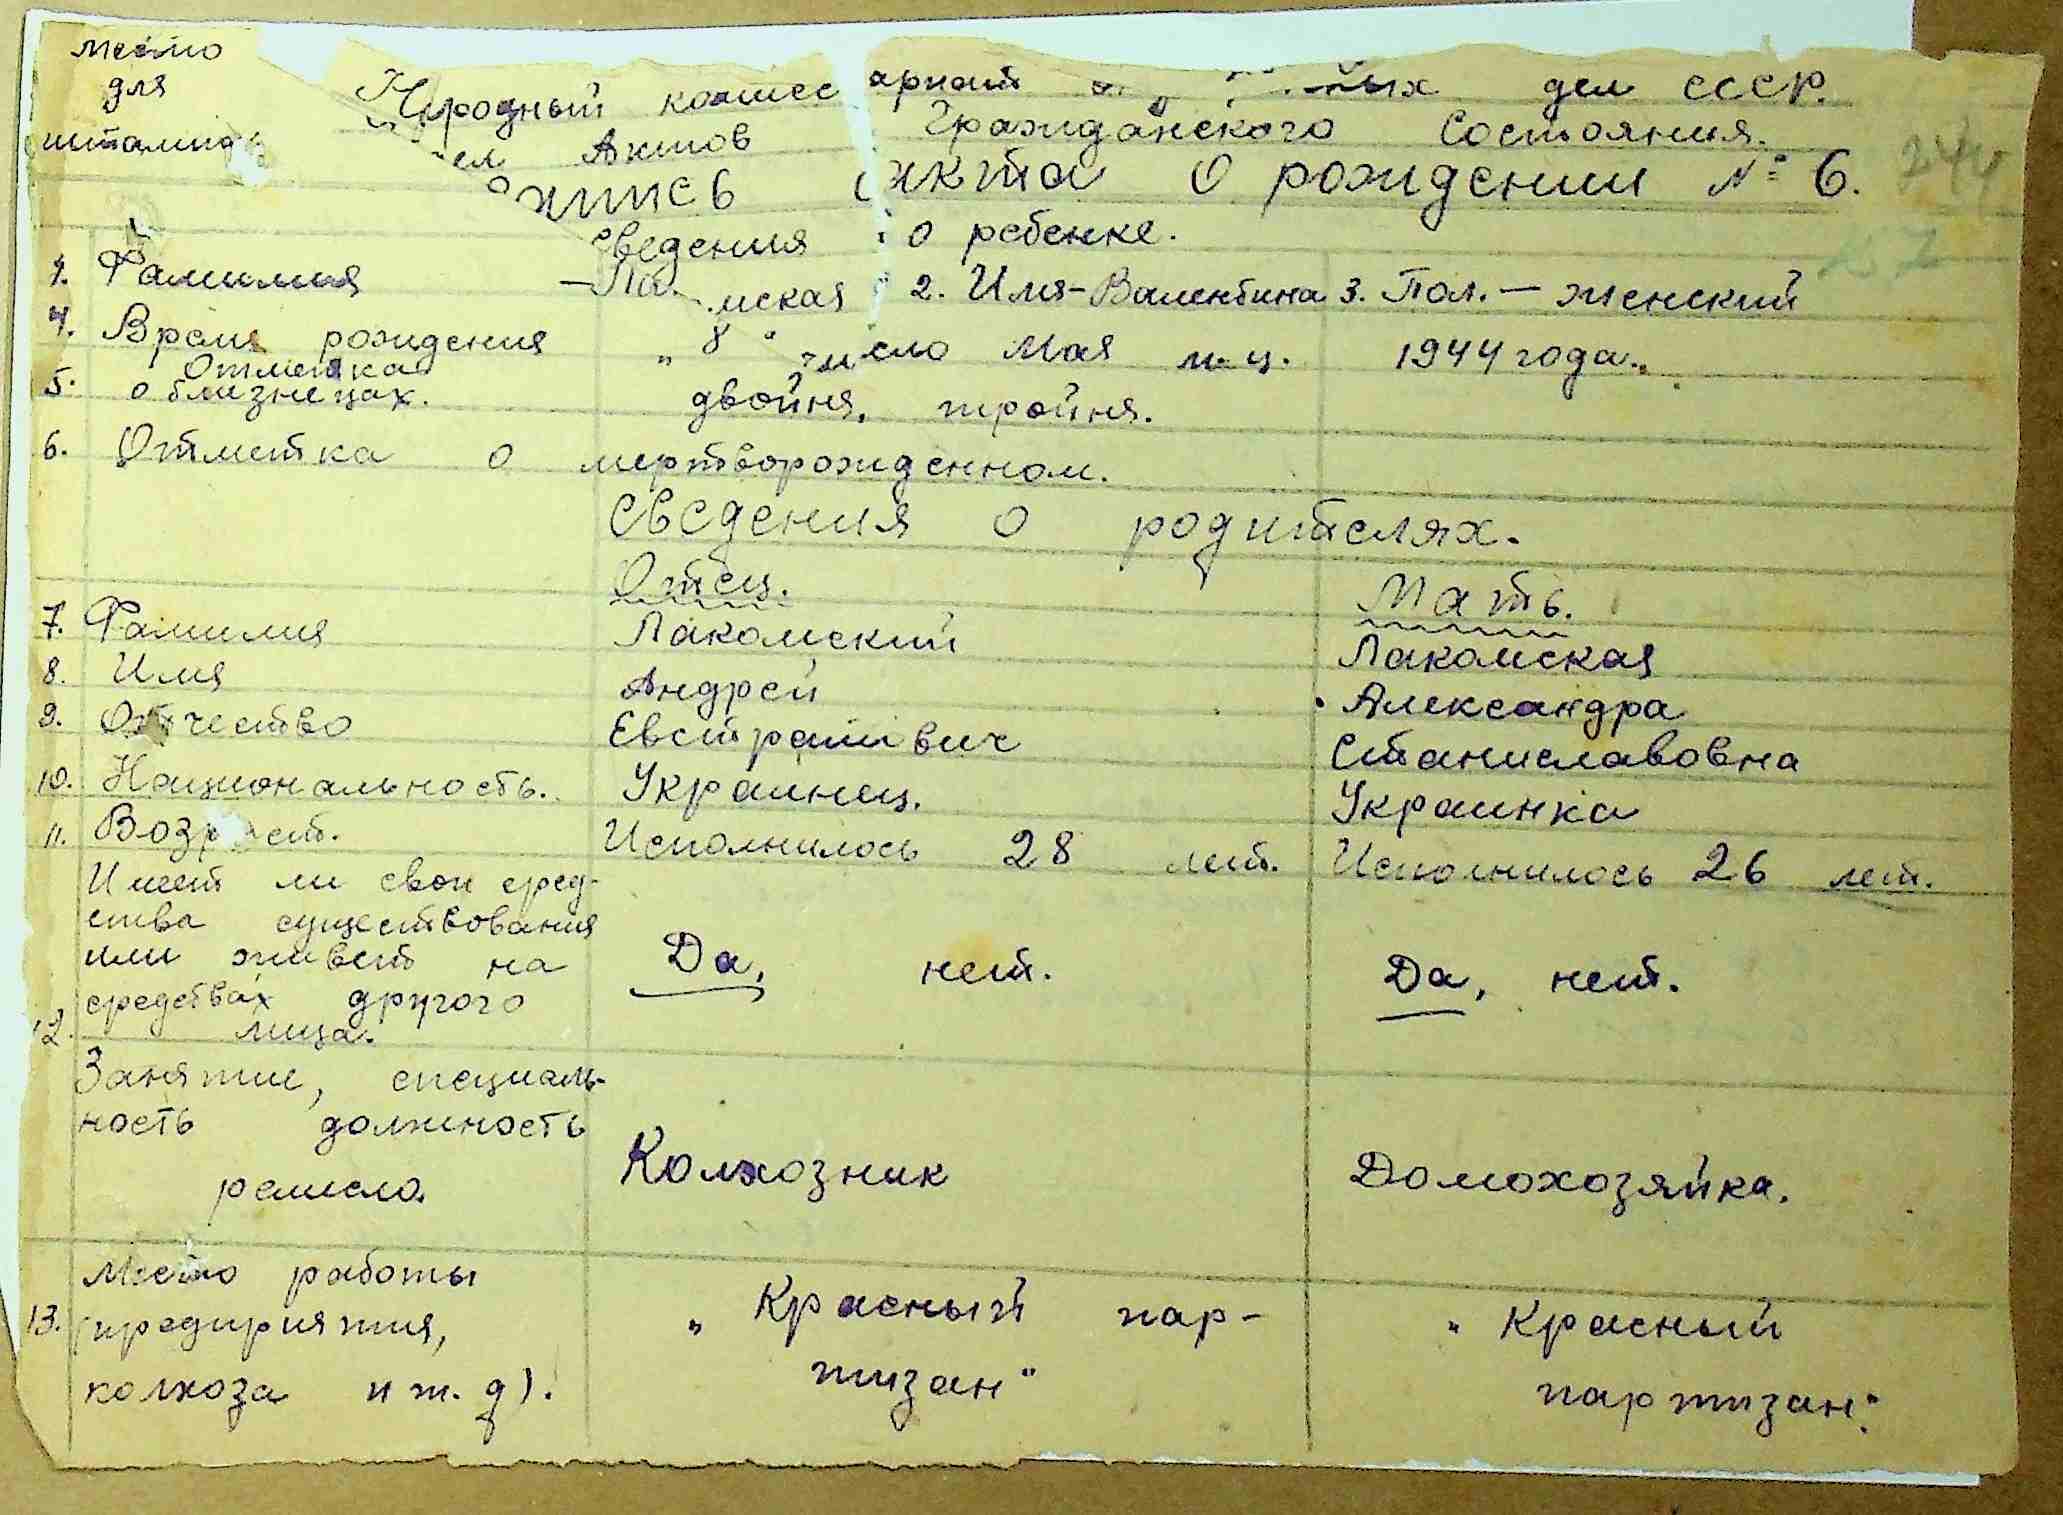 место
для
штампа
Народный комисс ариат дел СССР.
Актов Гражданского Состояния.
Акта о рождении № 6.
244
Сведения о ребенке.
1. Фамилия — Ла мская 2. Имя - Валентина 3. Пол. — женский
4. Время рождения „ 8 " число Мая м-ц. 1944 года.
5. Отметка
о близнецах. двойня, тройня.
6. Отметка о мертворожденном.
Сведения о родителях.
Отец. Мать.
7. Фамилия Лакомский Лакомская
8. Имя Андрей Александра
9. Отчество Евстратиевич Станиславовна
10. Национальность. Украинец. Украинка
11. Возраст. Исполнилось 28 лет. Исполнилось 26 лет.
Имеет ли свои сред-
ства существования
или живет на
средствах другого
12. лица. Да, нет. Да, нет.
Занятие, специаль-
ность должность
ремесло. Колхозник Домохозяйка.
Место работы
13. (предприятия,
колхоза и т. д). „Красный пар-
тизан" „Красный
партизан".